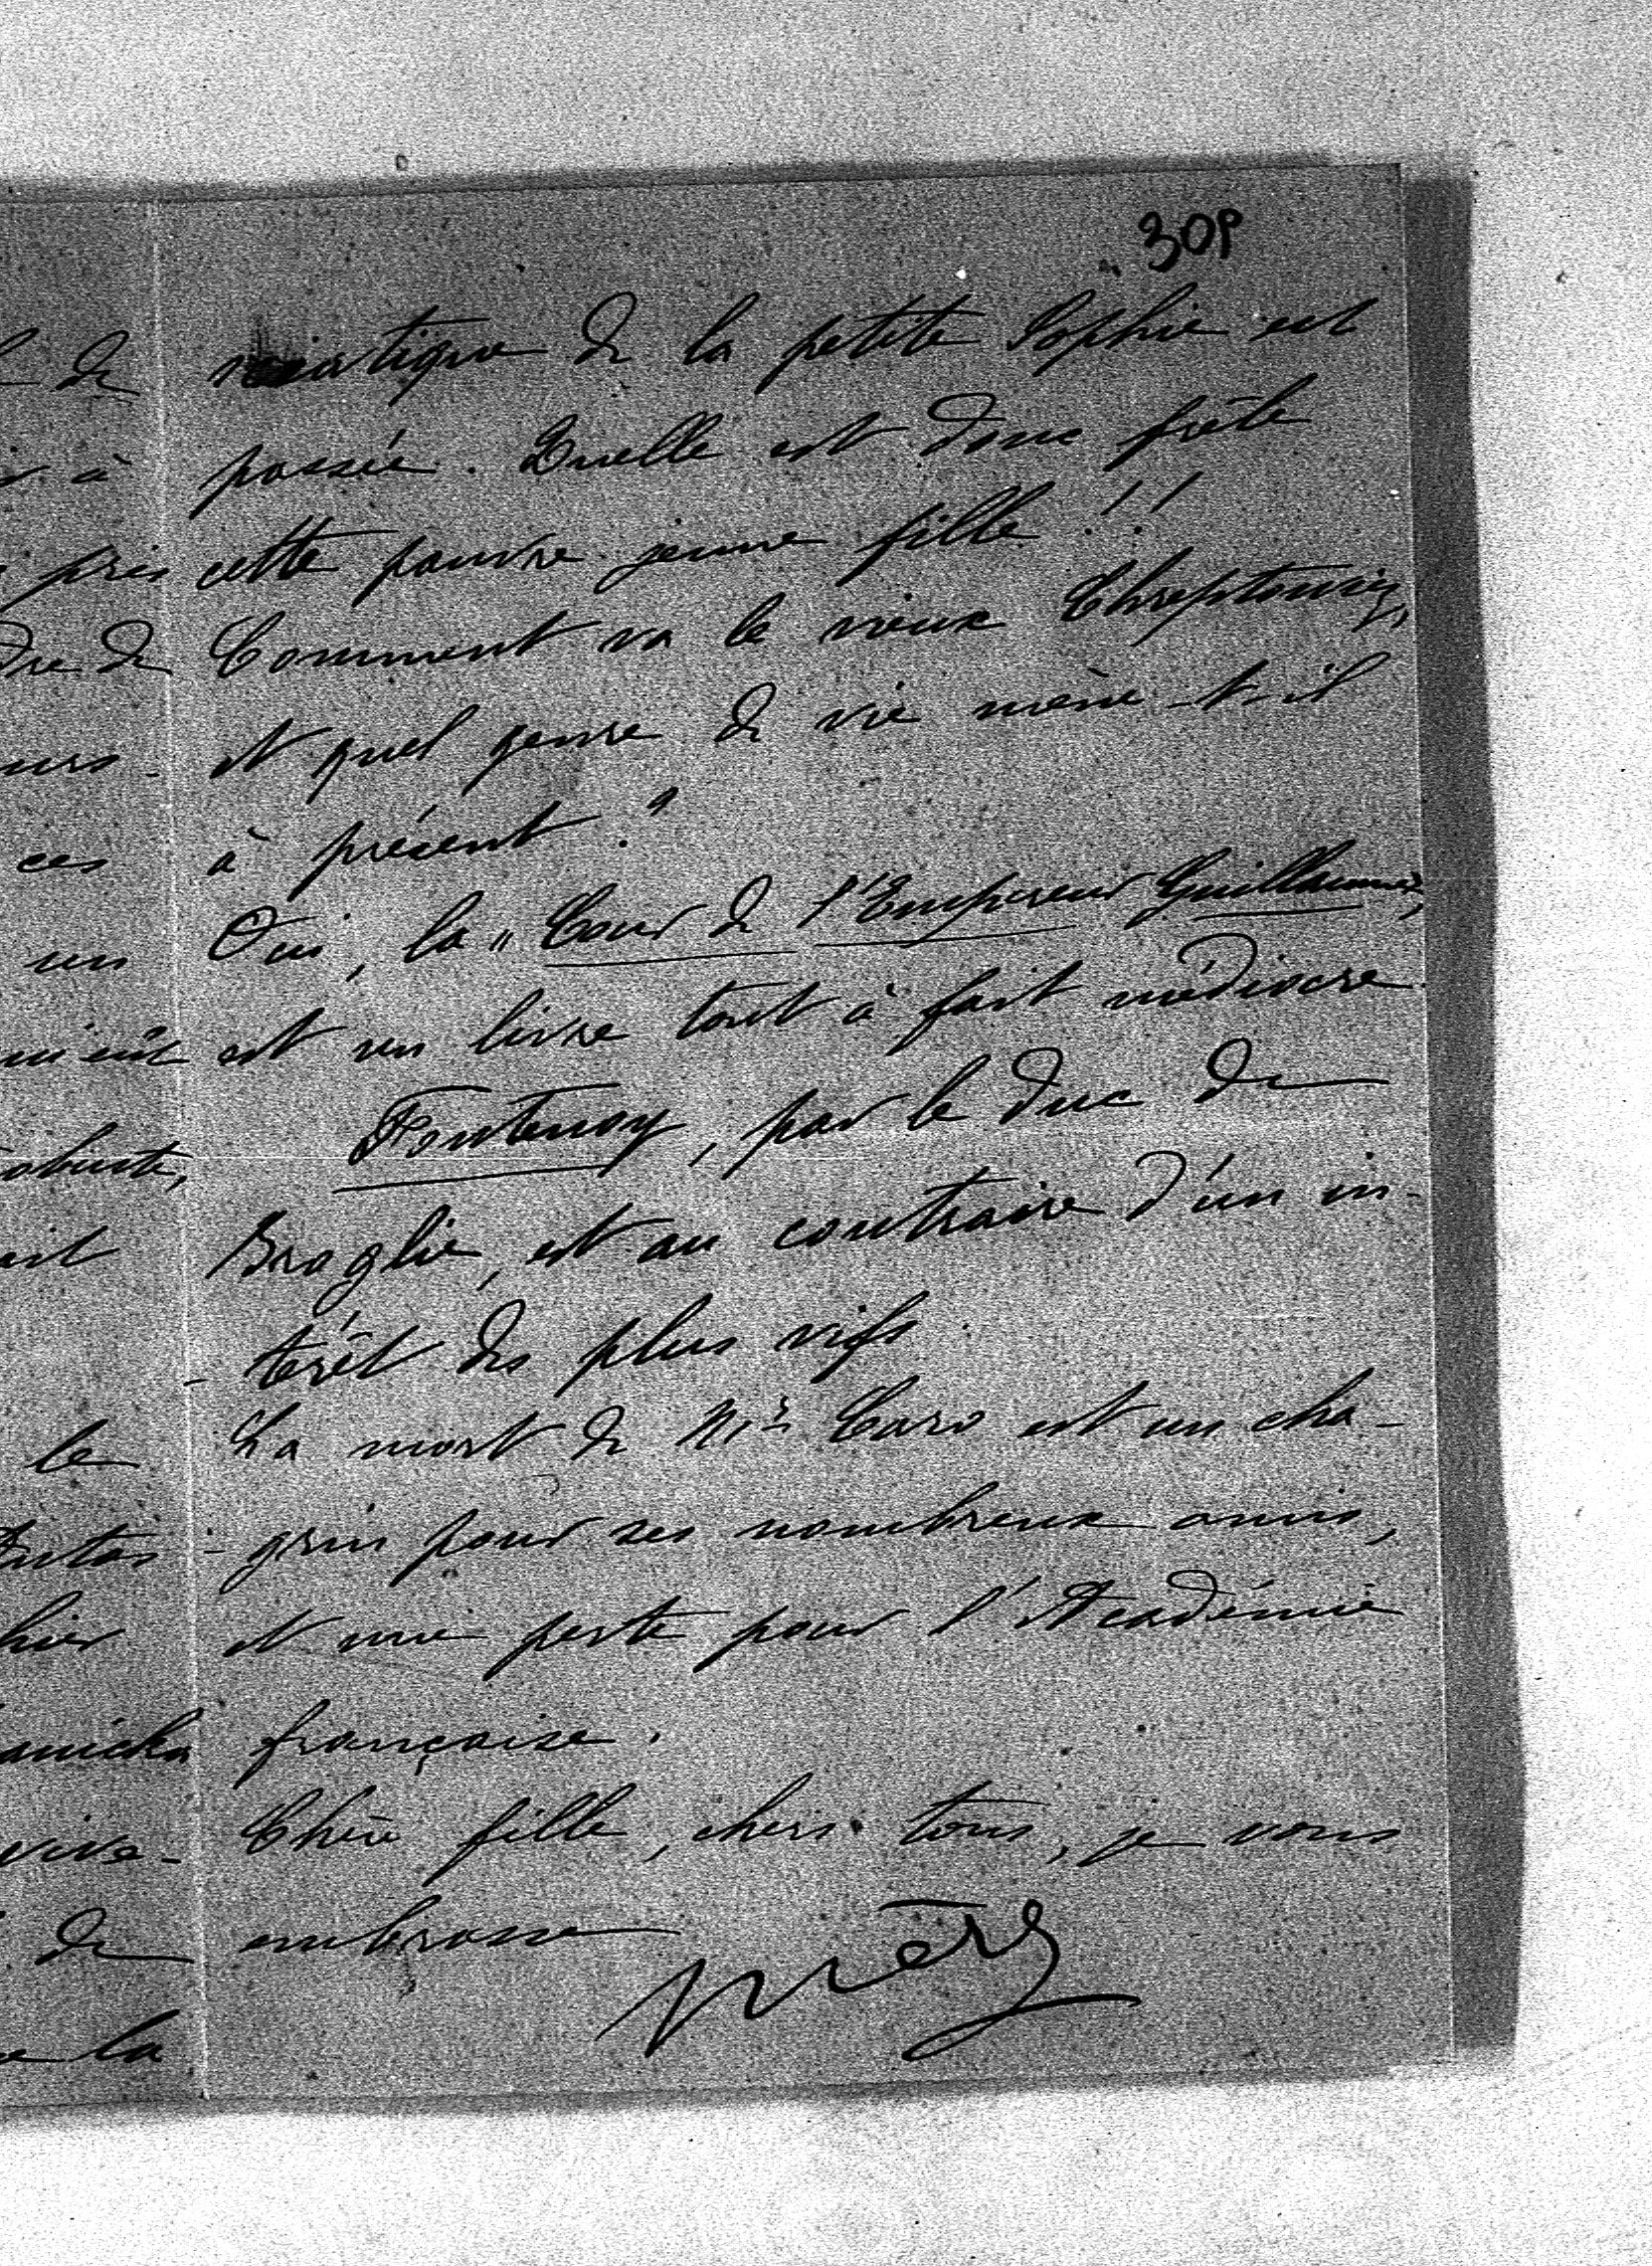 309
sciatique de la petite Sophie est
passée. Quelle est donc frêle
cette pauvre jeune fille !!
Comment va le vieux Chreptowicz,
et quel genre de vie mène-t-il
à présent ?
Oui, la "Cour de l'Empereur Guillaume"
est un livre tout à fait médiocre.
Fontenoy, par le duc de
Broglie, est au contraire d'un in-
-térêt des plus vifs.
La mort de Mr Caro est un cha-
-grin pour ses nombreux amis,
et une perte pour l'Académie
française.
Chère fille, chers tous, je vous
embrasse
de
à
près
de
ces
un
le
hier
vive-
de
la